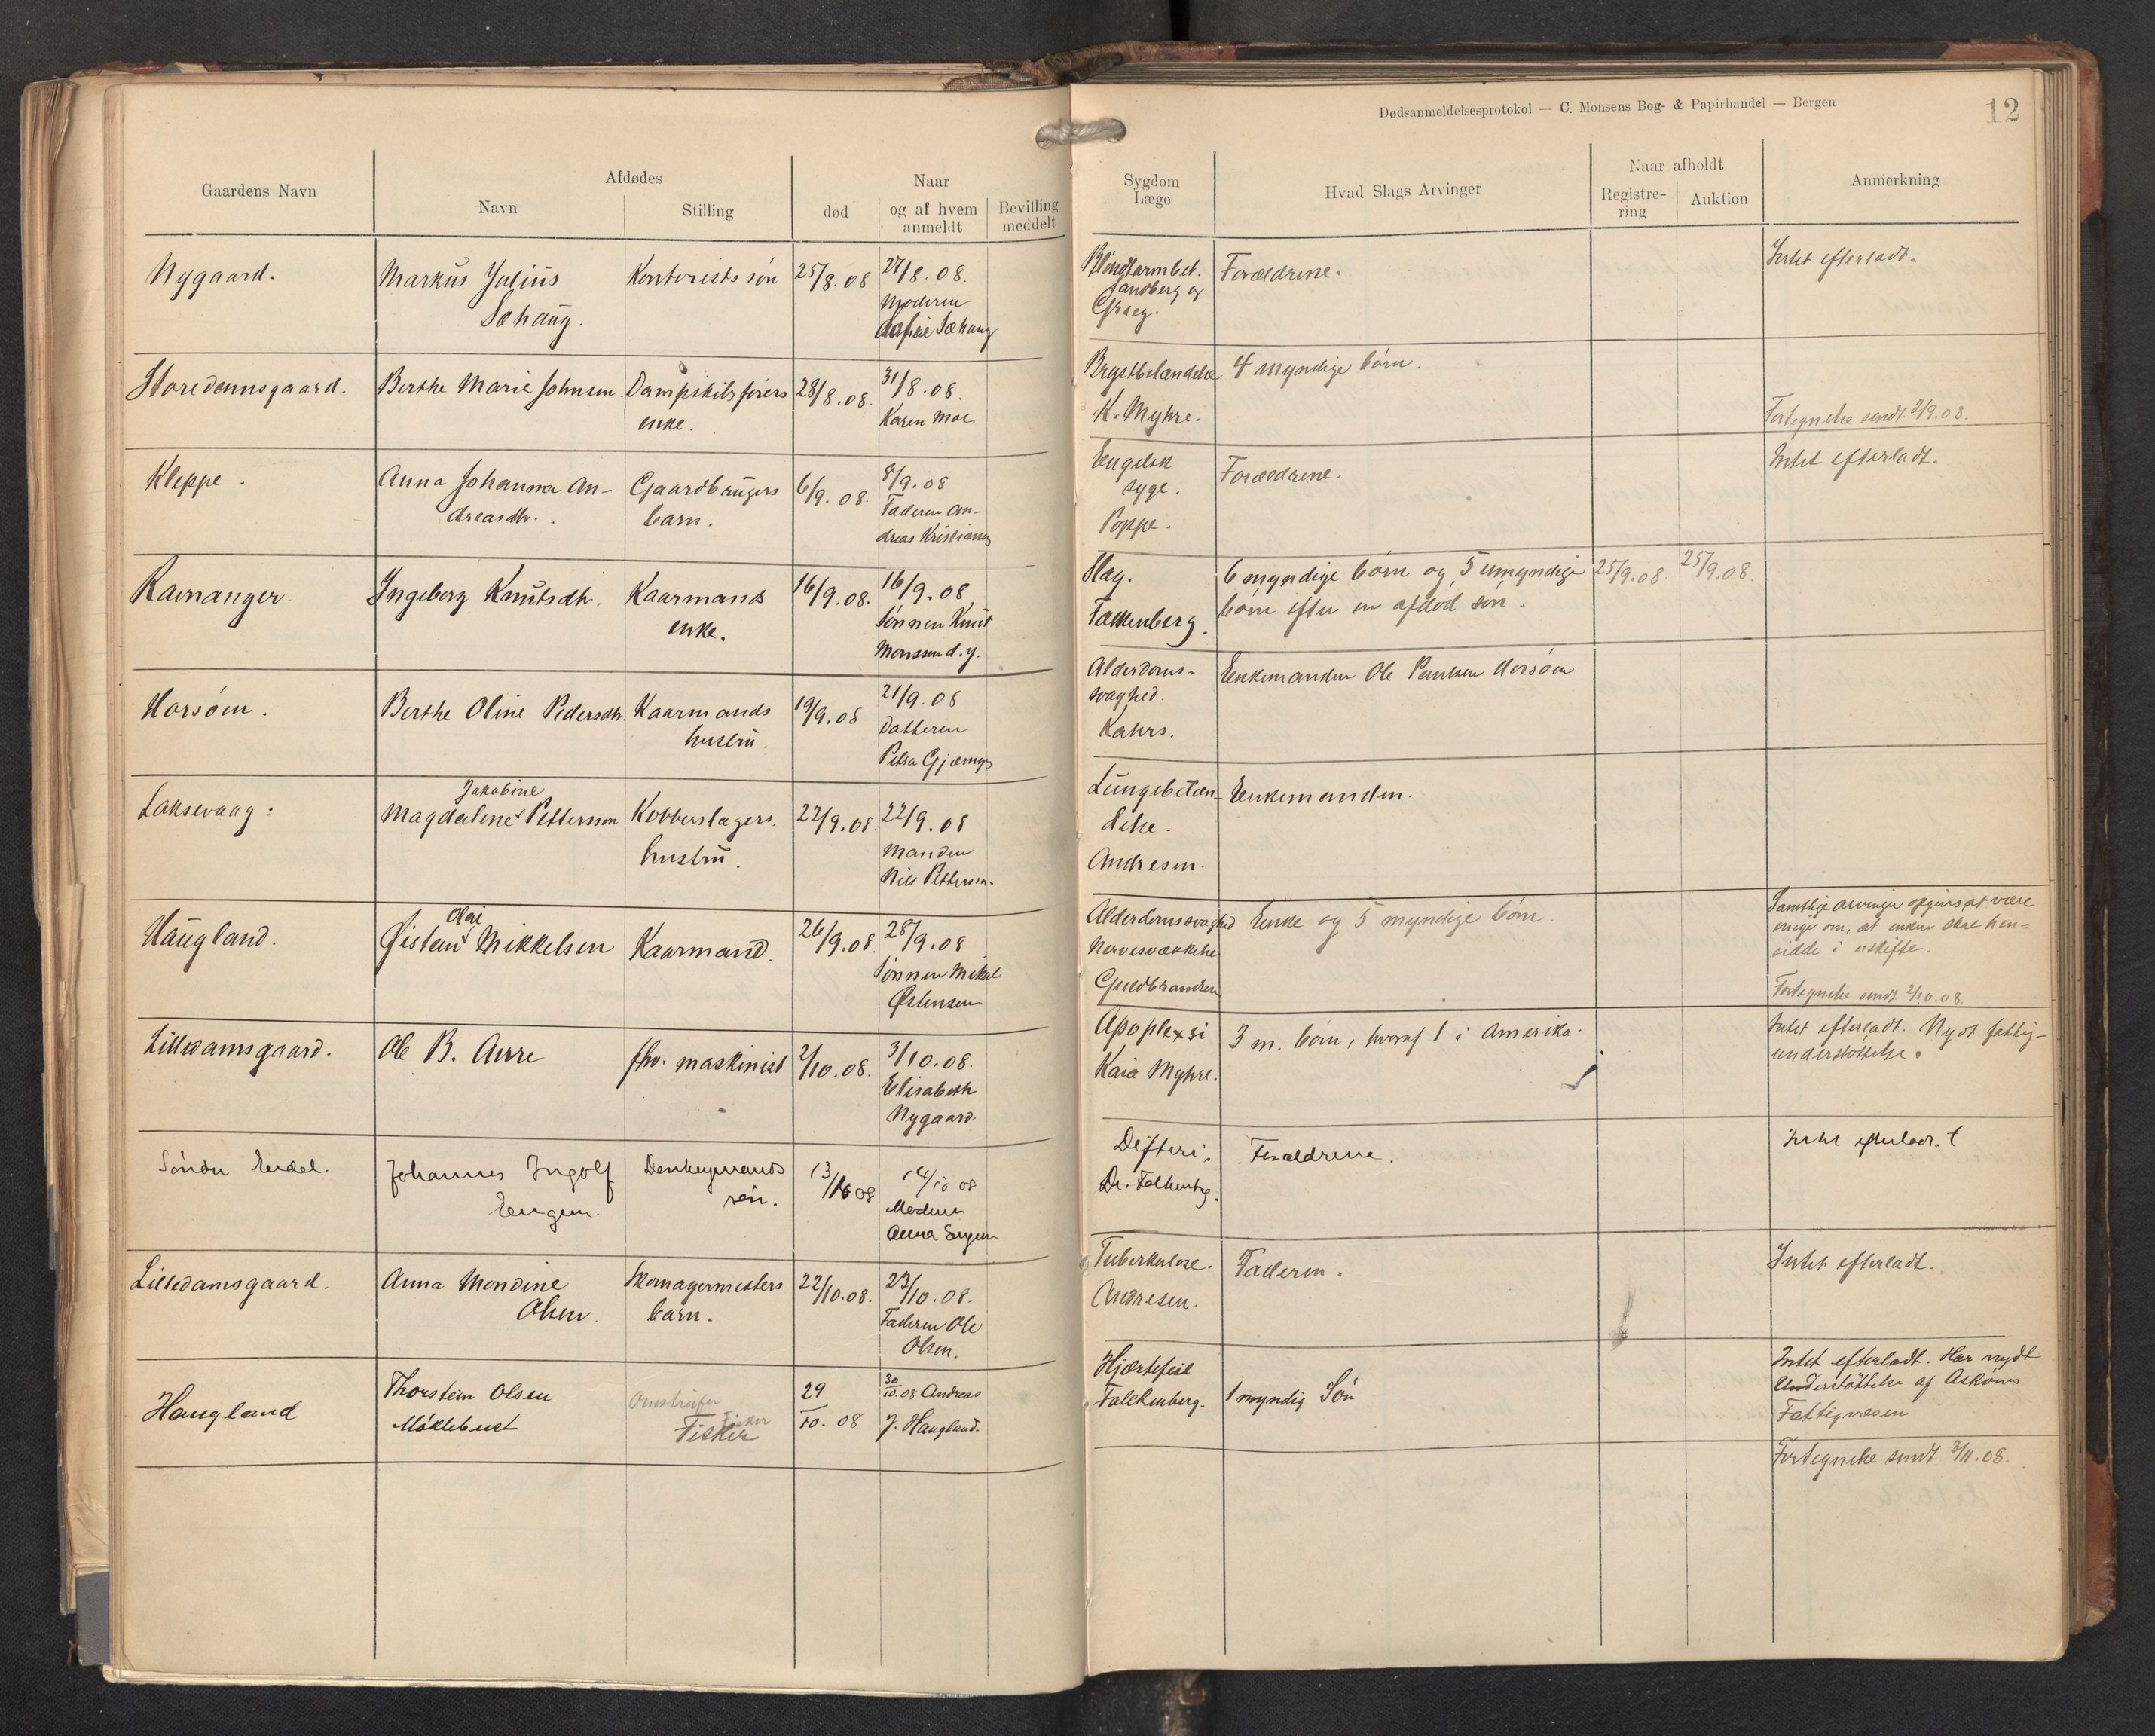 Dødsanmeldelsesprotokol — C. Monsens Bog- & Papirhandel — Bergen
12
Gaardens Navn
Afdødes
Navn
Stilling
død
Naar
og af hvem
anmeldt
Bevilling
meddelt
Sygdom
Læge
Hvad Slags Arvinger
Naar afholdt
Registre-
ring
Auktion
Anmerkning
Nygaard.
Markus Julius
Sæhaug.
Kontorists søn
25/8.08
27/8.08.
Moderen
Sæhaug
Blindtarmbet.
Sandberg og
Forældrene.
Intet efterladt.
Storedamsgaard.
Berthe Marie Johnsen
Dampskibsførers
enke.
28/8.08.
31/8.08.
Karen Moe
Brystbetændelse
K. Myhre.
4 myndige børn.
Fortegnelse sendt 2/9.08.
Kleppe.
Anna Johanna An-
dreasdtr.
Gaardbrugers
barn.
6/9.08.
8/9.08
Faderen An-
dreas Kristians
Engelsk
syge.
Poppe.
Forældrene.
Intet efterladt.
Ramanger.
Ingeborg Knutsdtr.
Kaarmands
enke.
16/9.08.
16/9.08
Sønnen Knut
Monssen d.y.
Slag.
Falkenberg.
6 myndige børn og 5 umyndige
børn efter en afdød søn.
25/9.08.
25/9.08.
Horsøen.
Berthe Oline Pedersdtr.
Kaarmands
hustru.
19/9.08
21/9.08
Datteren
Petra Gjærnys
Alderdoms-
svaghed.
Kahrs.
Enkemanden Ole Paulsen Horsøen
Laksevaag:
Jakobine
Magdalene Pettersson
Kobberslagers
hustru.
22/9.08.
22/9.08
Manden
Nils Petterson.
Lungebetæn-
delse.
Andresen.
Enkemanden.
Haugland.
Olai
Øistein Mikkelsen
Kaarmand.
26/9.08.
28/9.08
Sønnen Mikal
Østensen
Alderdomssvaghed
Nervesvækkelse
Guldbrandsen
Enke og 5 myndige børn.
Samtlige arvinger opgives at være
enige om, at enken skal hen-
sidde i uskifte.
Fortegnelse sendt 2/10.08.
Lilledamsgaard.
Ole B. Aarre
fhv. maskinist
2/10.08.
3/10.08.
Elisabeth
Nygaard.
Apoplexsi
Kaia Myhre.
3 m. børn, hvoraf 1 i Amerika.
Intet efterladt. Nydt fattig-
understøttelse.
Søndre Eidel.
Johannes Ingolf
Engen.
søn.
13/10 08
14/10 08
Moderen
Anna Engen
Difteri.
Dr. Falkenbg.
Forældrene.
Intet efterladt.
Lilledamsgaard.
Anna Mondine
Olsen.
Skomagermesters
barn.
22/10.08.
23/10.08.
Faderen Ole
Olsen.
Tuberkulose.
Andresen.
Faderen.
Intet efterladt.
Haugland
Thorstein Olsen
Møklebust
Omstreifer
Fisker
Fisker
29/10.08
30/10.08 Andreas
J. Haugland.
Hjærtefeil
Falckenberg.
1 myndig Søn
Intet efterladt. Har nydt
Understøttelse af Askøens
Fattigvæsen
Fortegnelse sendt 3/11.08.